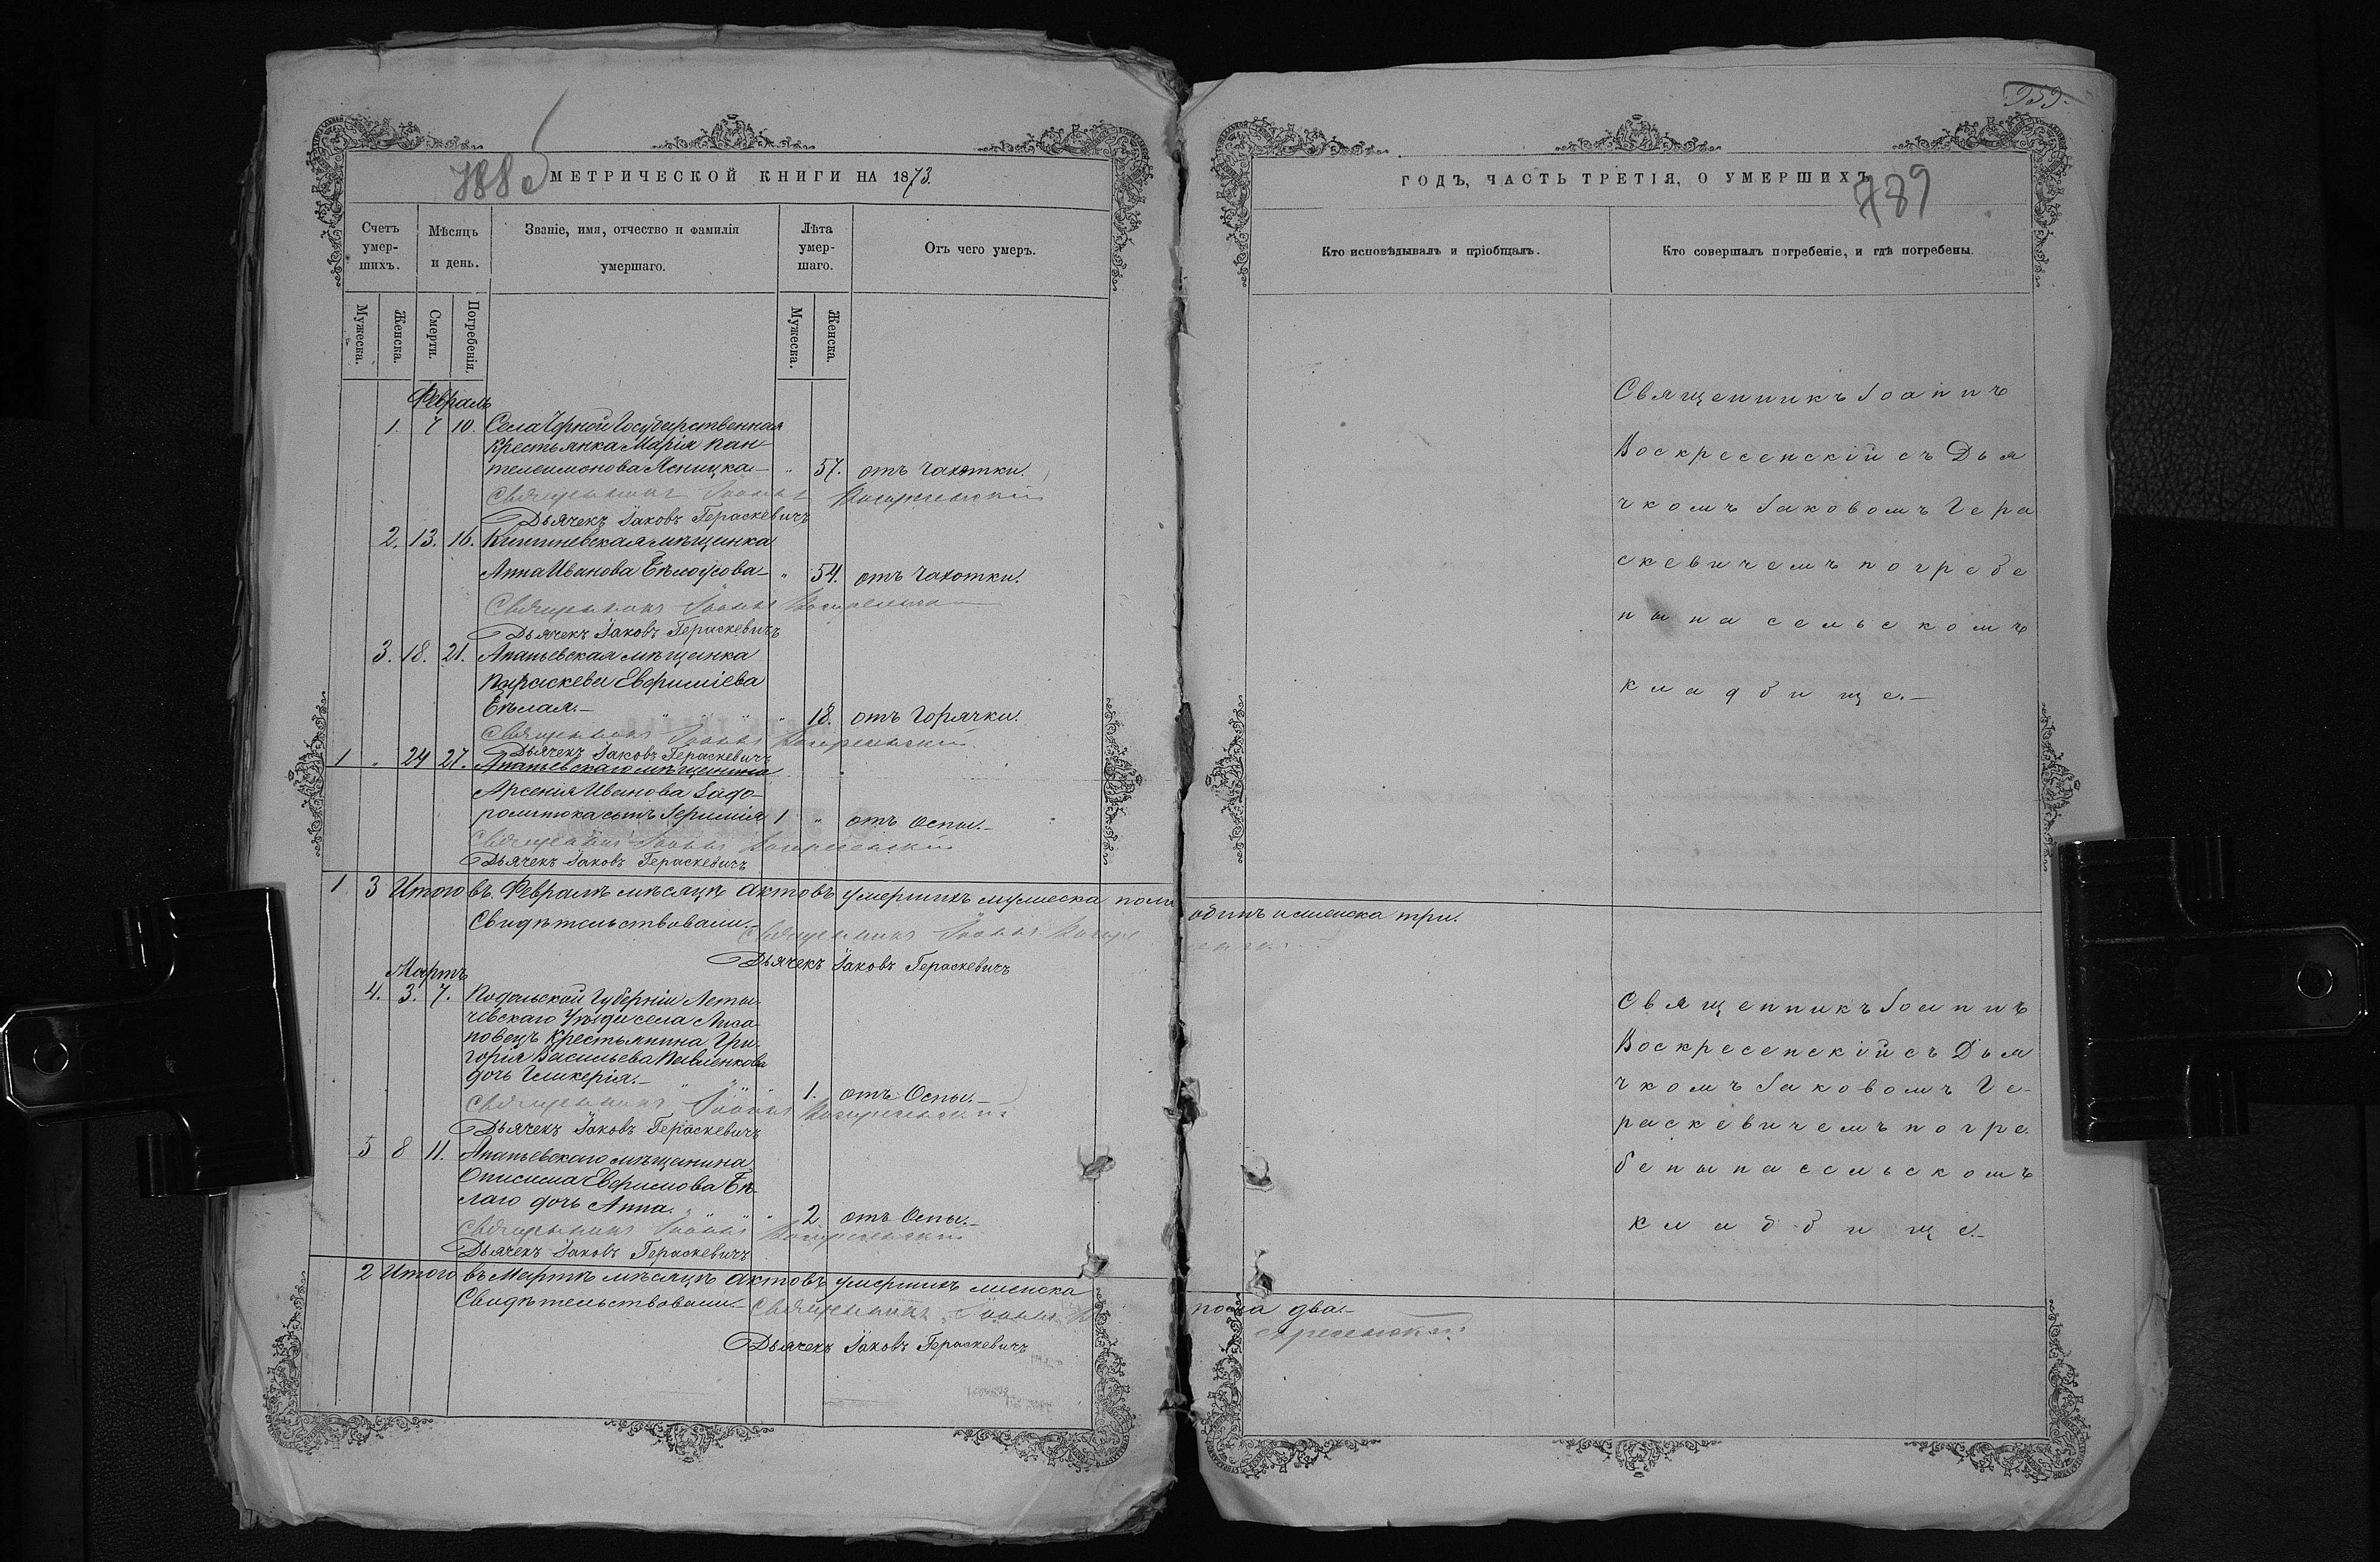 788
МЕТРИЧЕСКОЙ КНИГИ НА 1873.
Счетъ умер-шихъ.
Мѣсяцъ и день.
Званіе, имя, отчество и фамилія умершаго.
Лѣта умер-шаго.
Отъ чего умеръ.
Мужеска.
Женска.
Смерти.
Погребенія.
Мужеска.
Женска.
Февраль
1. 7 10. Села Чорной Государственная
крестьянка Марія Пан-
телеимонова Ясницкая 57. отъ Чахотки.
Священникъ Іоаннъ Воскресенскій
Дьячекъ Іаковъ Гераскевичъ
2. 13. 16. Кишиневская мѣщанка
Анна Иванова Бѣлоусова 54. отъ Чахотки.
Священникъ Іоаннъ Воскресенскій
Дьячекъ Іаковъ Гераскевичъ
3. 18. 21. Ананьевская мѣщанка
Параскева Евфиміева
Бѣлая.— 18. отъ Горячки.
Священникъ Іоаннъ Воскресенскій
Дьячекъ Іаковъ Гераскевичъ
1 24 27. Ананьевскаго мѣщанина
Арсенія Иванова Задо-
сынъ Іеримія 1 " отъ Оспы.—
Священникъ Іоаннъ Воскресенскій
Дьячекъ Іаковъ Гераскевичъ
1 3 Итого въ Февралѣ мѣсяцѣ актовъ умершихъ мужеска пола
Свидѣтельствовали.— Священникъ Іоаннъ Воскре
Дьячекъ Іаковъ Гераскевичъ
Мартъ
4. 3. 7. Подольской Губерніи Лети-
чевскаго Уѣзда села Лиса-
новецъ Крестьянина Гри-
горія Васильева Павленкова
дочь Гликерія.— 1. отъ Оспы.—
Священникъ Іоаннъ Воскресенскій
Дьячекъ Іаковъ Гераскевичъ
5 8 11. Ананьевскаго мѣщанина
Онисима Евфимова Бѣ-
лаго дочь Анна. 2. отъ Оспы.—
Священникъ Іоаннъ Воскресенскій
Дьячекъ Іаковъ Гераскевичъ
2 Итого въ Мартѣ мѣсяцѣ актовъ умершихъ женска
Свидѣтельствовали— Священникъ Іоаннъ Во
Дьячекъ Іаковъ Гераскевичъ
959.
ГОДЪ, ЧАСТЬ ТРЕТІЯ, О УМЕРШИХЪ
789
Кто исповѣдывалъ и пріобщалъ.
Кто совершалъ погребеніе, и гдѣ погребены.
Священникъ Іоаннъ
Воскресенскій съ Дья
чкомъ Іаковомъ Гера
скевичемъ погребе
ны на сельскомъ
кладбище.—
одинъ и женска три.
Священникъ Іоаннъ
Воскресенскій съ Дья
чкомъ Іаковомъ Ге-
раскевичемъ погре
бены на сельскомъ
кладбище.—
пола два—
скресенскій